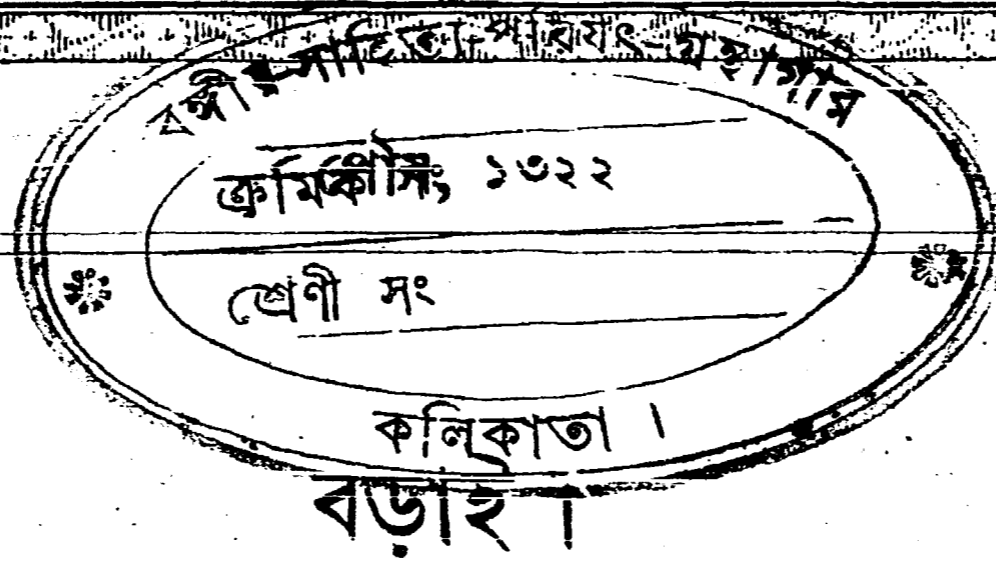 বঙ্গীয়-সাহিত্য-পরিষৎ-গ্রন্থাগার
ক্রমিক সং ১৩২২
শ্রেণী সং
কলিকাতা ।
বড়াই ।